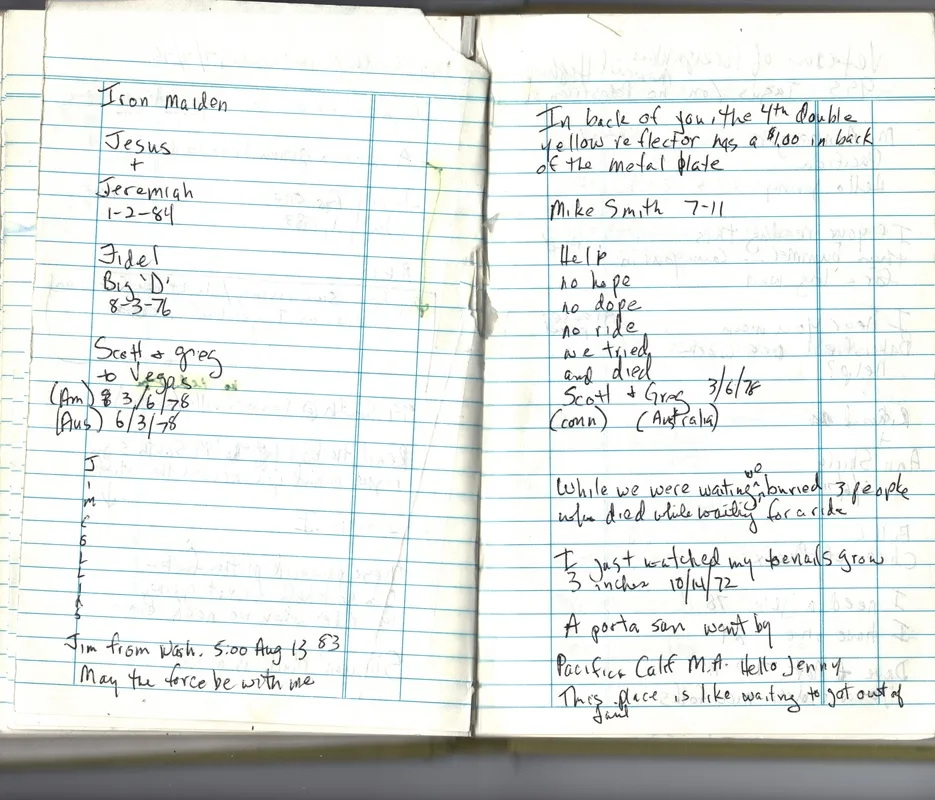 Iron Maiden
Jesus
+
Jeremiah
1-2-84
Fidel
Big 'D'
8-3-76
Scott & greg
to Vegas
(Am) 3/6/78
(Aus) 6/3/78
J
i
m
E
G
L
L
I
A
S
Jim from Wash. 5:00 Aug 13 83
May the force be with me
In back of you, the 4th double
yellow reflector has a $1.00 in back
of the metal plate
Mike Smith 7-11
Help
no hope
no dope
no ride
we tried
and died
Scott & Greg 3/6/78
(conn) (Australia)
While we were waiting we buried 3 people
who died while waiting for a ride
I just watched my toenails grow
3 inches 10/14/72
A porta san went by
Pacifica Calif M.A. Hello Jenny
This place is like waiting to got out of
Jail